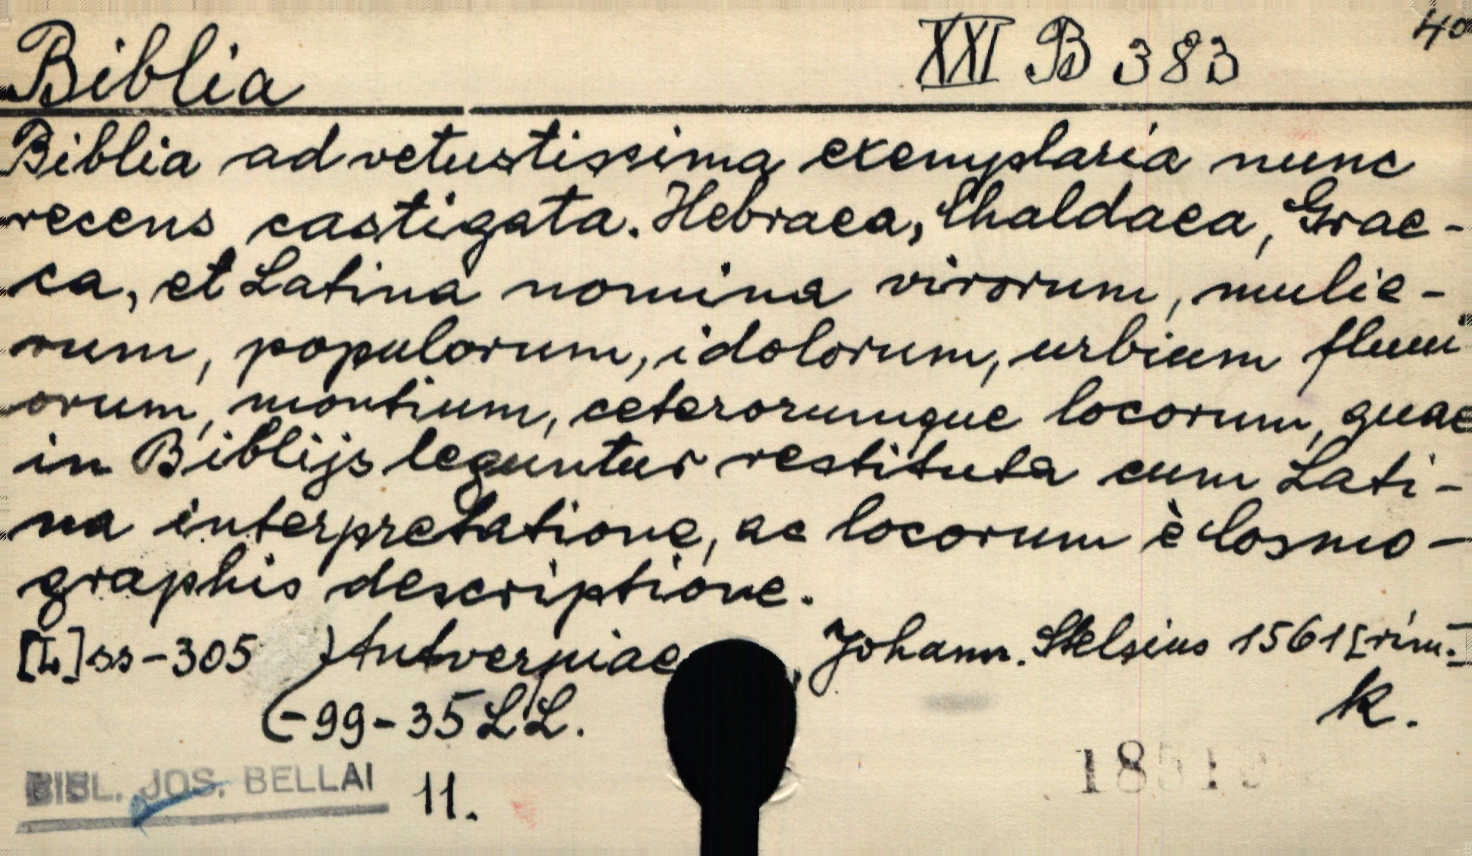 Biblia XXI B 383 40
Biblia ad vetustissima exemplaria nunc
recens castigata. Hebraea, Chaldaea, Grae-
ca, et Latina nomina virorum, mulie-
rum, populorum, idolorum, urbium fluui
orum, montium, ceterorumque locorum, quae
in Biblijs leguntur restituta cum Lati-
na interpretatione, ac locorum è Cosmo-
graphis descriptione.
ss-305 Antverpiae, Johann. Stelsius 1561 [rim.]
-99-35 LL. k.
BIBL. JOS. BELLAI 11.